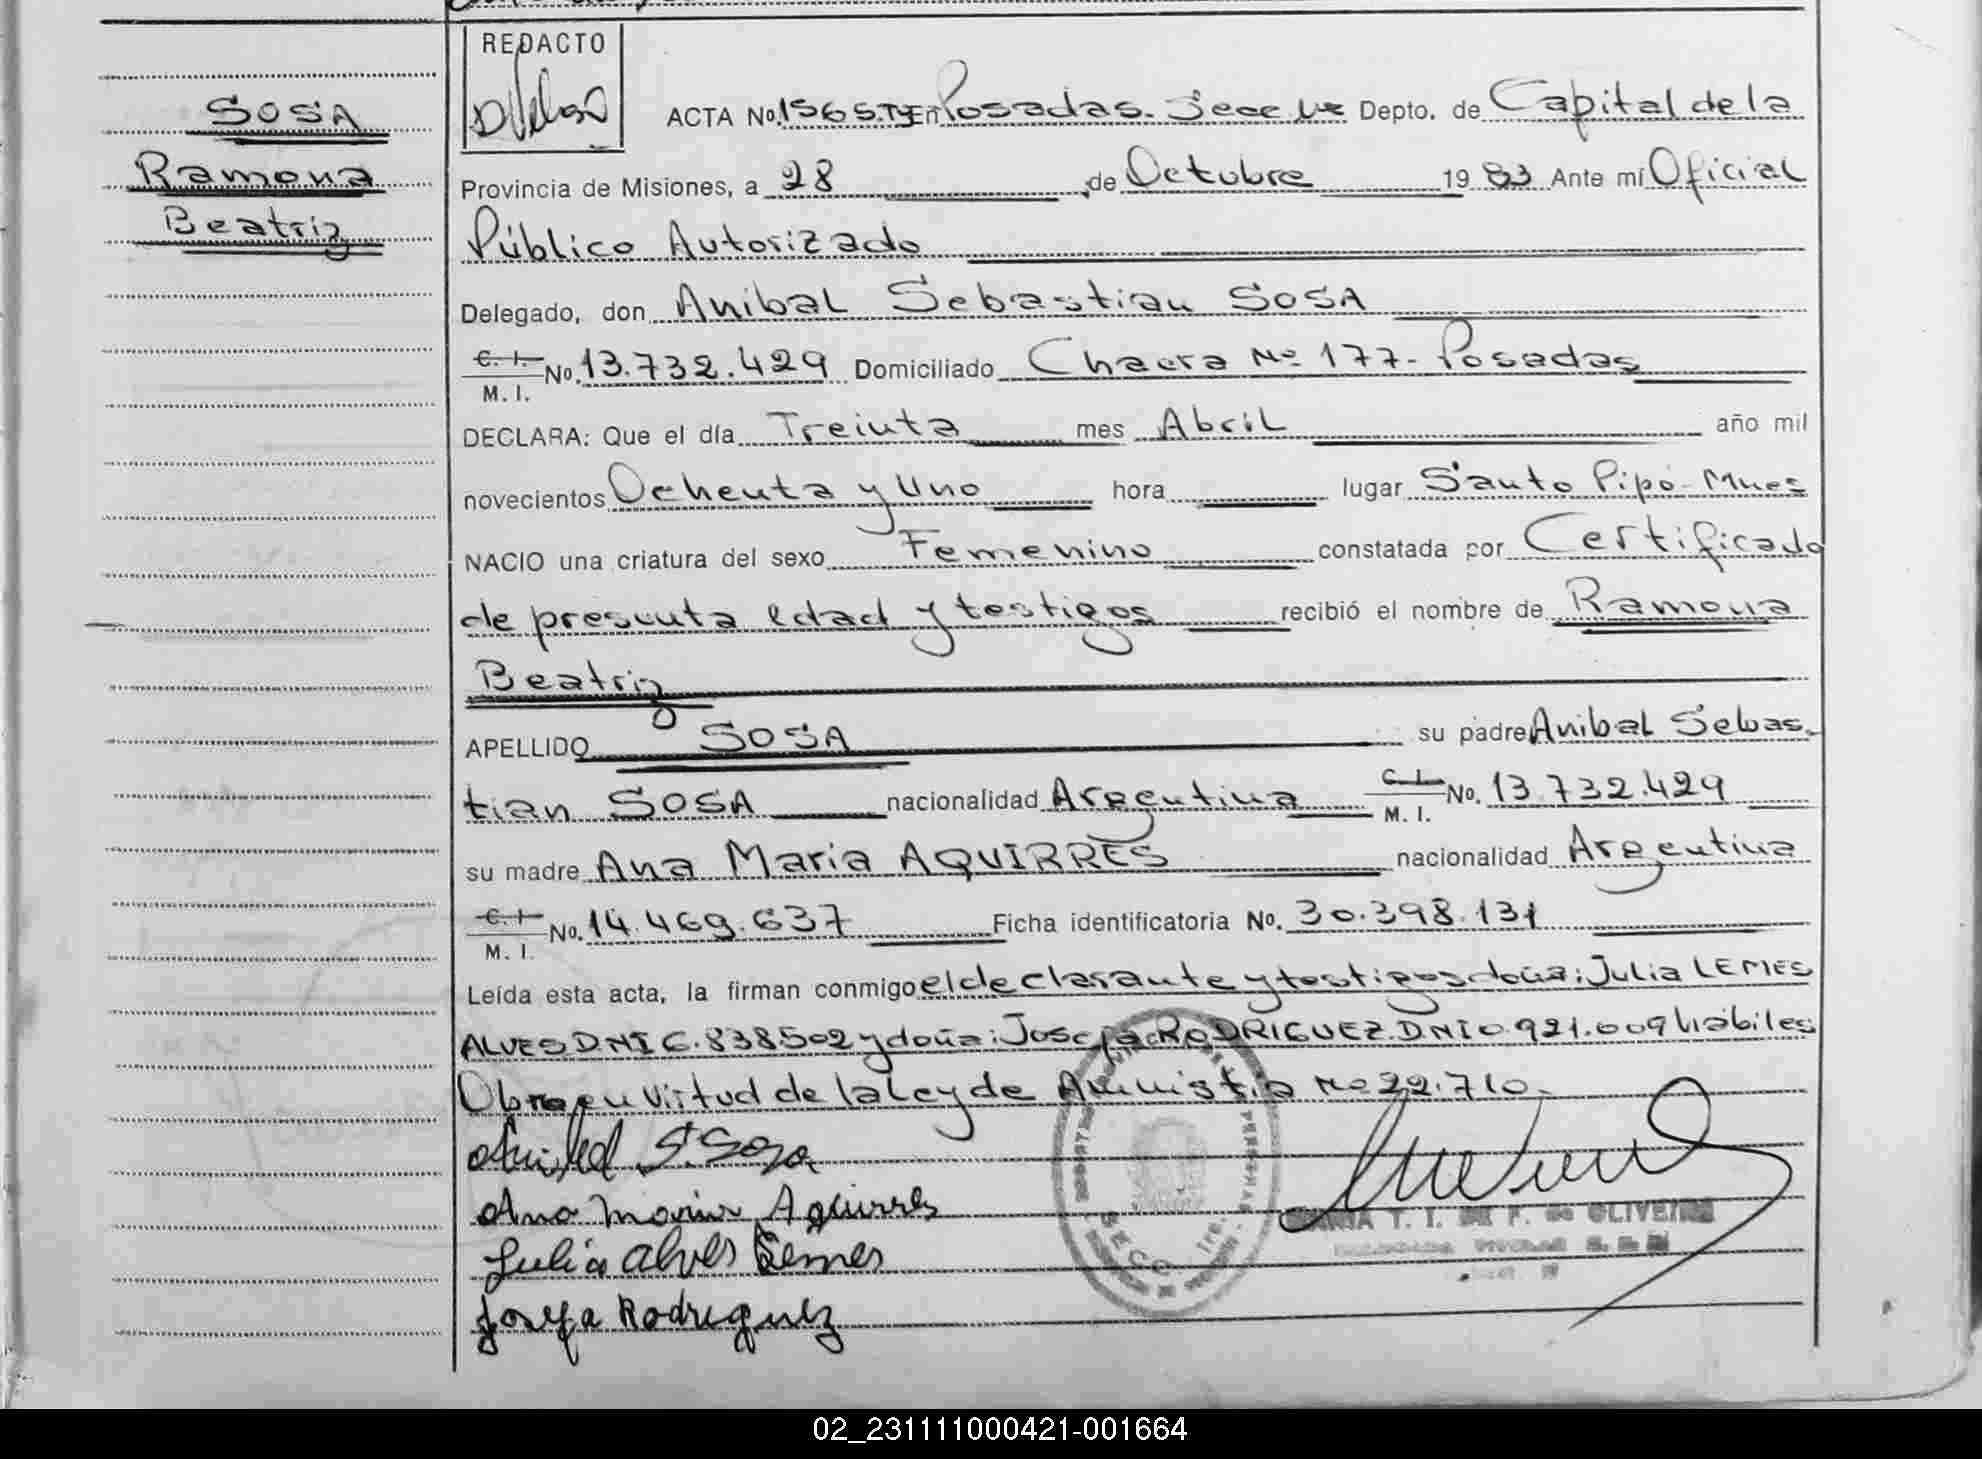 REDACTO
SOSA
Ramona
Beatriz
ACTA No. 1565.Ty En Posadas. Secc 1ra Depto. de Capital de la
Provincia de Misiones, a 28 de Octubre 1983 Ante mí Oficial
Público Autorizado
Delegado, don Anibal Sebastian SOSA
C. I.
M. I. No. 13.732.429 Domiciliado Chacra No 177- Posadas
DECLARA: Que el día Treinta mes Abril año mil
novecientos Ochenta y Uno hora lugar Santo Pipó- Mnes
NACIO una criatura del sexo Femenino constatada por Certificado
de presunta edad y testigos recibió el nombre de Ramona
Beatriz
APELLIDO SOSA su padre Anibal Sebas-
tian SOSA nacionalidad Argentina C. I.
M. I. No. 13.732.429
su madre Ana Maria AQUIRRES nacionalidad Argentina
C. I.
M. I. No. 14.469.637 Ficha identificatoria No. 30.398.131
Leída esta acta, la firman conmigo el declarante y testigos doña: Julia LEMES
ALVES DNI 6.838502 y doña: Josefa RODRIGUEZ. DNI 0.921.009 habiles
Obra en virtud de la Ley de Amnistia No 22.710.-
Anibal S. Sosa
Ana Maria Aguirres
Julia Alves Lemes
Josefa Rodriguez
SECC. 1RA.
T. I. DE F. de OLIVEIRA
02_231111000421-001664